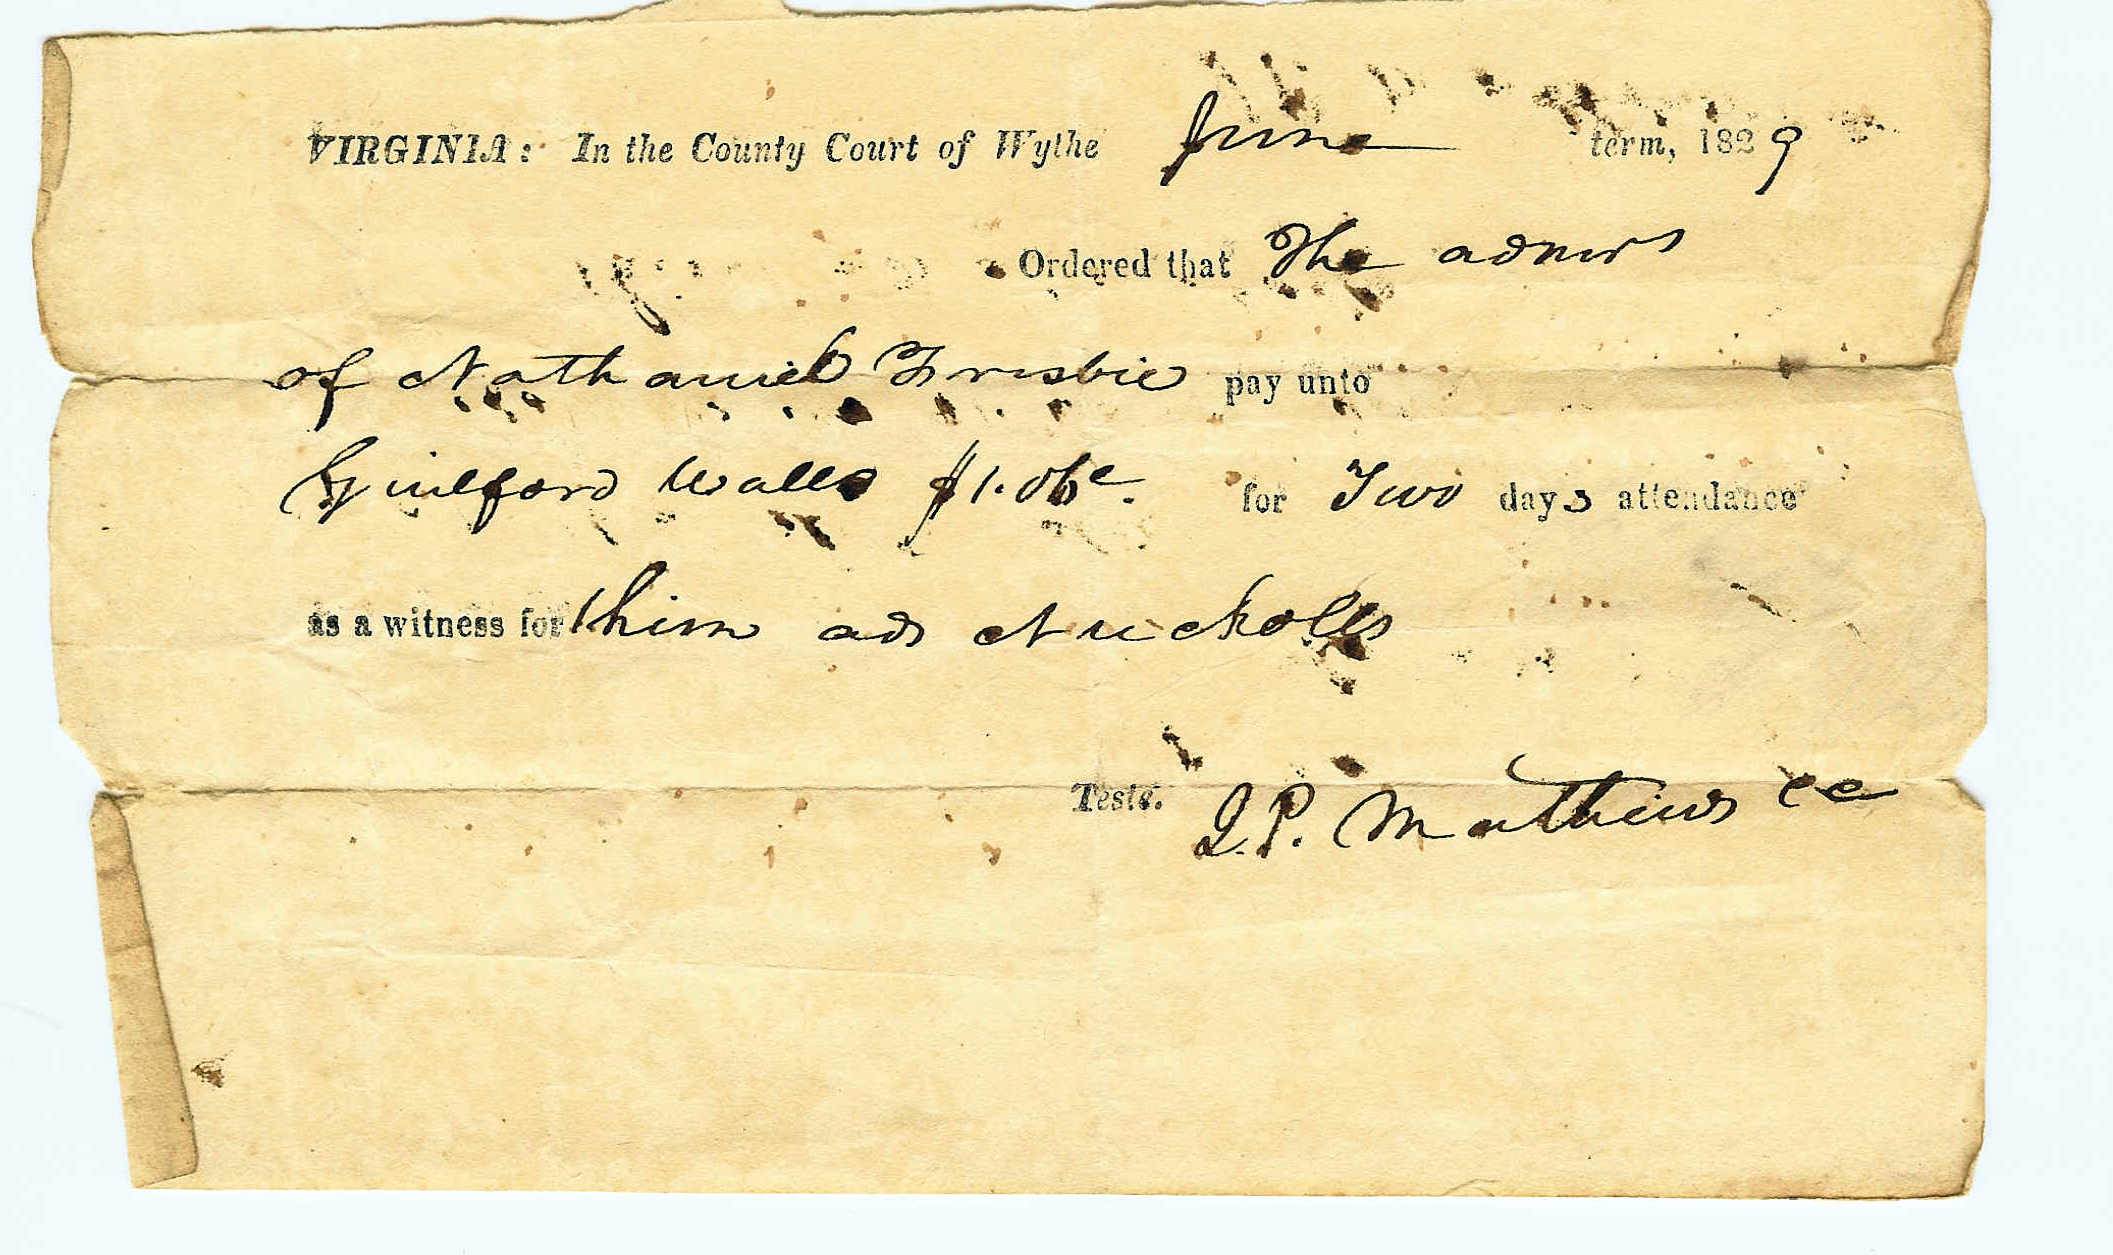 VIRGINIA: In the County Court of Wythe June term, 1829
Ordered that The admrs
of Nathaniel Frisbie pay unto
Guilford Walls $1.06c. for Two days attendance
as a witness for them ads Nuckolls
Teste. J. P. Mathews CC